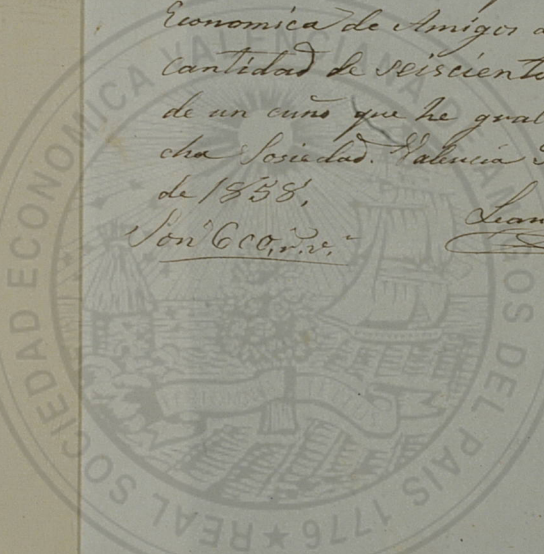 Economica de Amigos
cantidad de seisciento
de un cuño que he gra
cha Sosiedad. Valencia
de 1858.
Son 600, r. v.
Lean
REAL SOCIEDAD ECONOMICA VALENCIANA DE AMIGOS DEL PAIS 1776